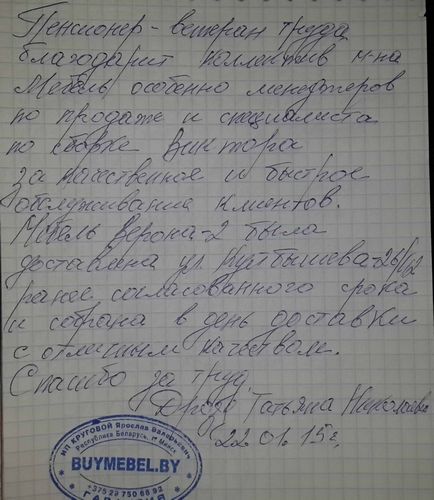 Пенсионер - ветеран труда
благодарит коллектив м-на
Мебель особенно менеджеров
по продаже и специалиста
по сборке Виктора
за качественное и быстрое
обслуживание клиентов.
Мебель Верона-2 была
доставлена ул. Куйбышева-26/
ранее согласованного срока
и собрана в день доставки
с отличным качеством.
Спасибо за труд.
Дрозд Татьяна Николаевна
22.01.15г.
ИП КРУГОВОЙ Ярослав Валерьевич
Республика Беларусь, г. Минск
BUYMEBEL.BY
+375 29 750 66 92